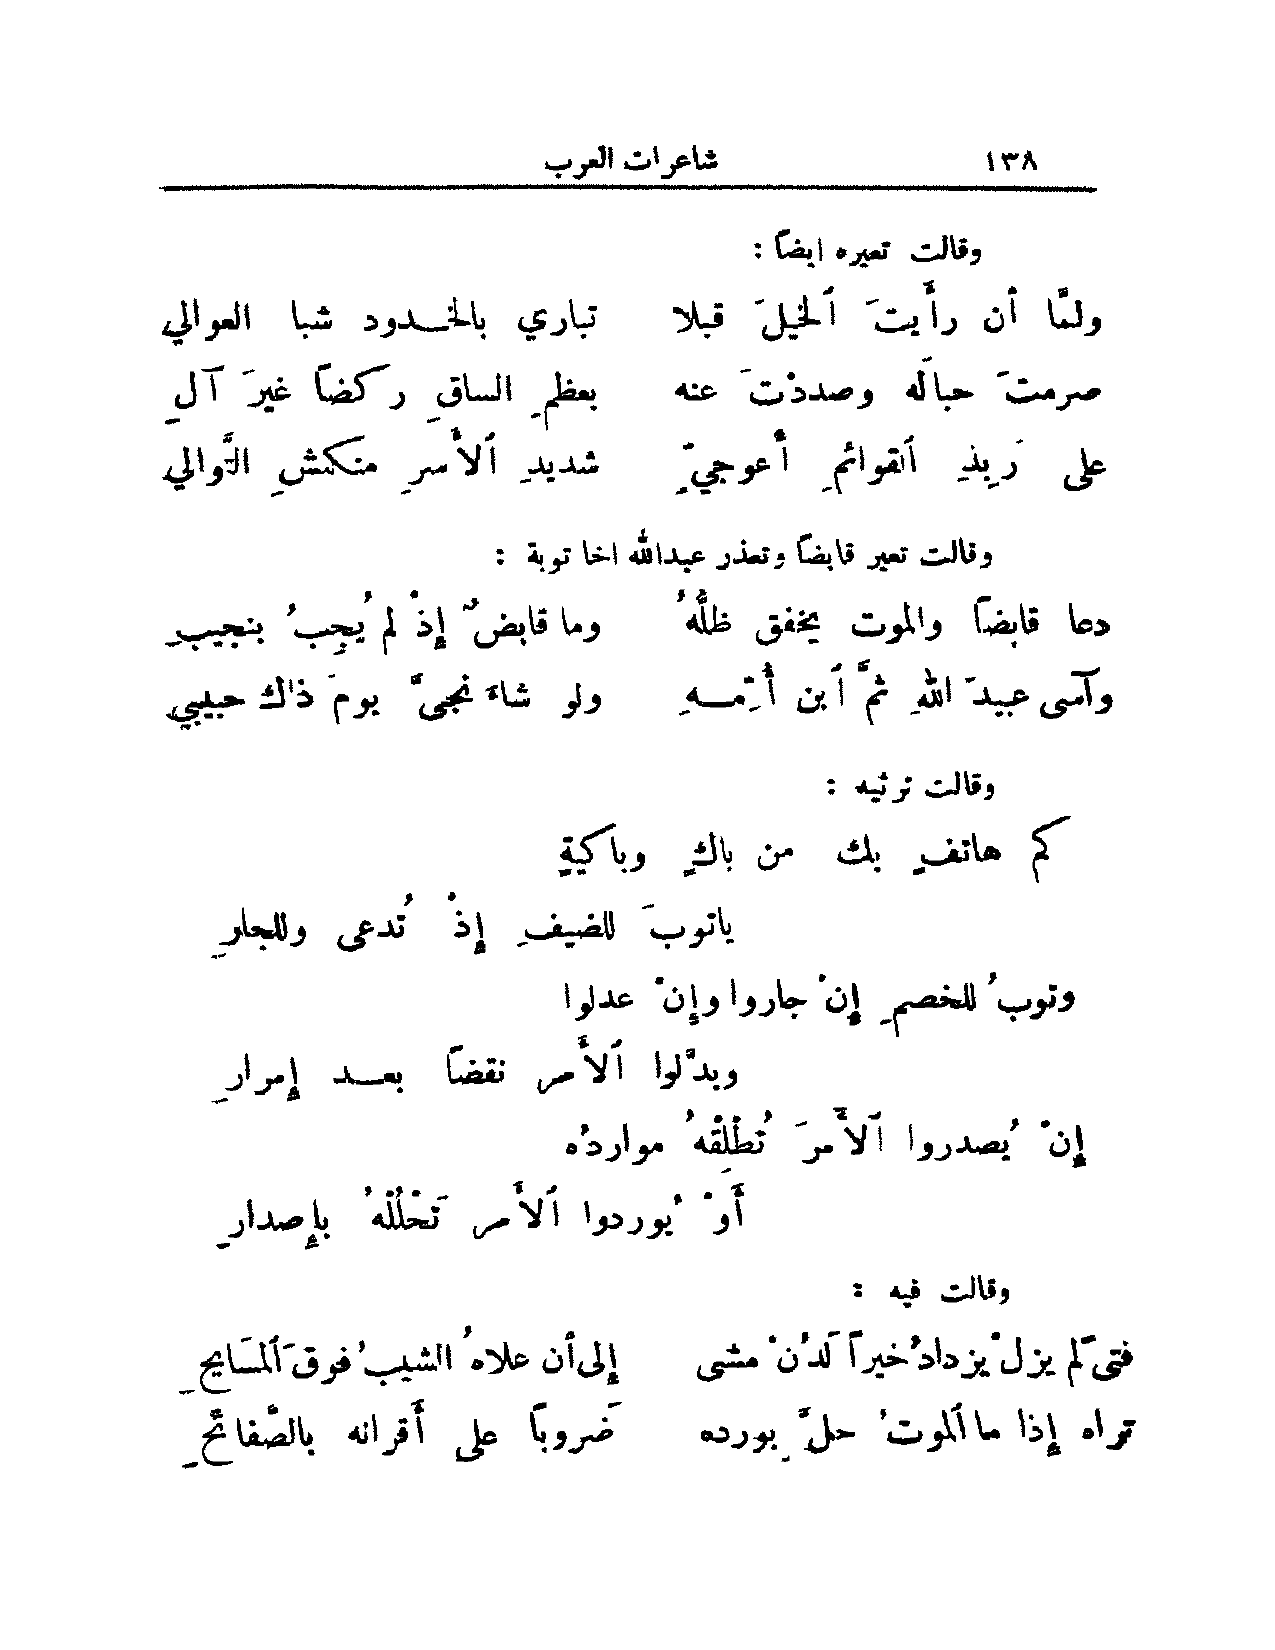 ١٣٨ شاعرات العرب
وقالت تعيره ايضاً :
ولمَّا أن رأَيتَ ٱلخيلَ قبلا تباري بالخـدود شبا العوالي
صرمتَ حبالَه وصددْتَ عنه بعظمِ الساقِ ركضاً غيرَ آلِ
على رَبِذِ ٱلقوائمِ أَعوجيٍّ شديدِ ٱلأَسرِ منكمشِ التَّوالي
وقالت تعير قابضاً وتعذر عبدالله اخا توبة :
دعا قابضاً والموت يخفق ظلُّهُ وما قابضٌ إِذْ لم يُجِبُ بنجيبِ
وآسى عبيدَ اللهِ ثمَّ ٱبن أُمِّـهِ ولو شاءَ نجىَّ يومَ ذاك حبيبي
وقالت ترثيه :
كم هاتفٍ بك من باكٍ وباكيةٍ
ياتوبَ للضيفِ إِذْ تُدعى وللجارِ
وتوبُ للخصمِ إِنْ جاروا وإِنْ عدلوا
وبدَّلوا ٱلأَمر نقضاً بعـد إِمرارِ
إِنْ يُصدروا ٱلأَمرَ تُطْلِقْهُ مواردُه
أَوْ يُوردوا ٱلأَمر تَحْلُلْهُ بإِصدارِ
وقالت فيه :
فتى لَم يزلْ يزدادُ خيراً لَدُنْ مشى إِلى أن علاهُ الشيبُ فوقَ ٱلمَسَايحِ
تراه إِذا ما ٱلموتُ حلَّ بِورده ضَروباً على أَقرانه بالصَّفائحِ